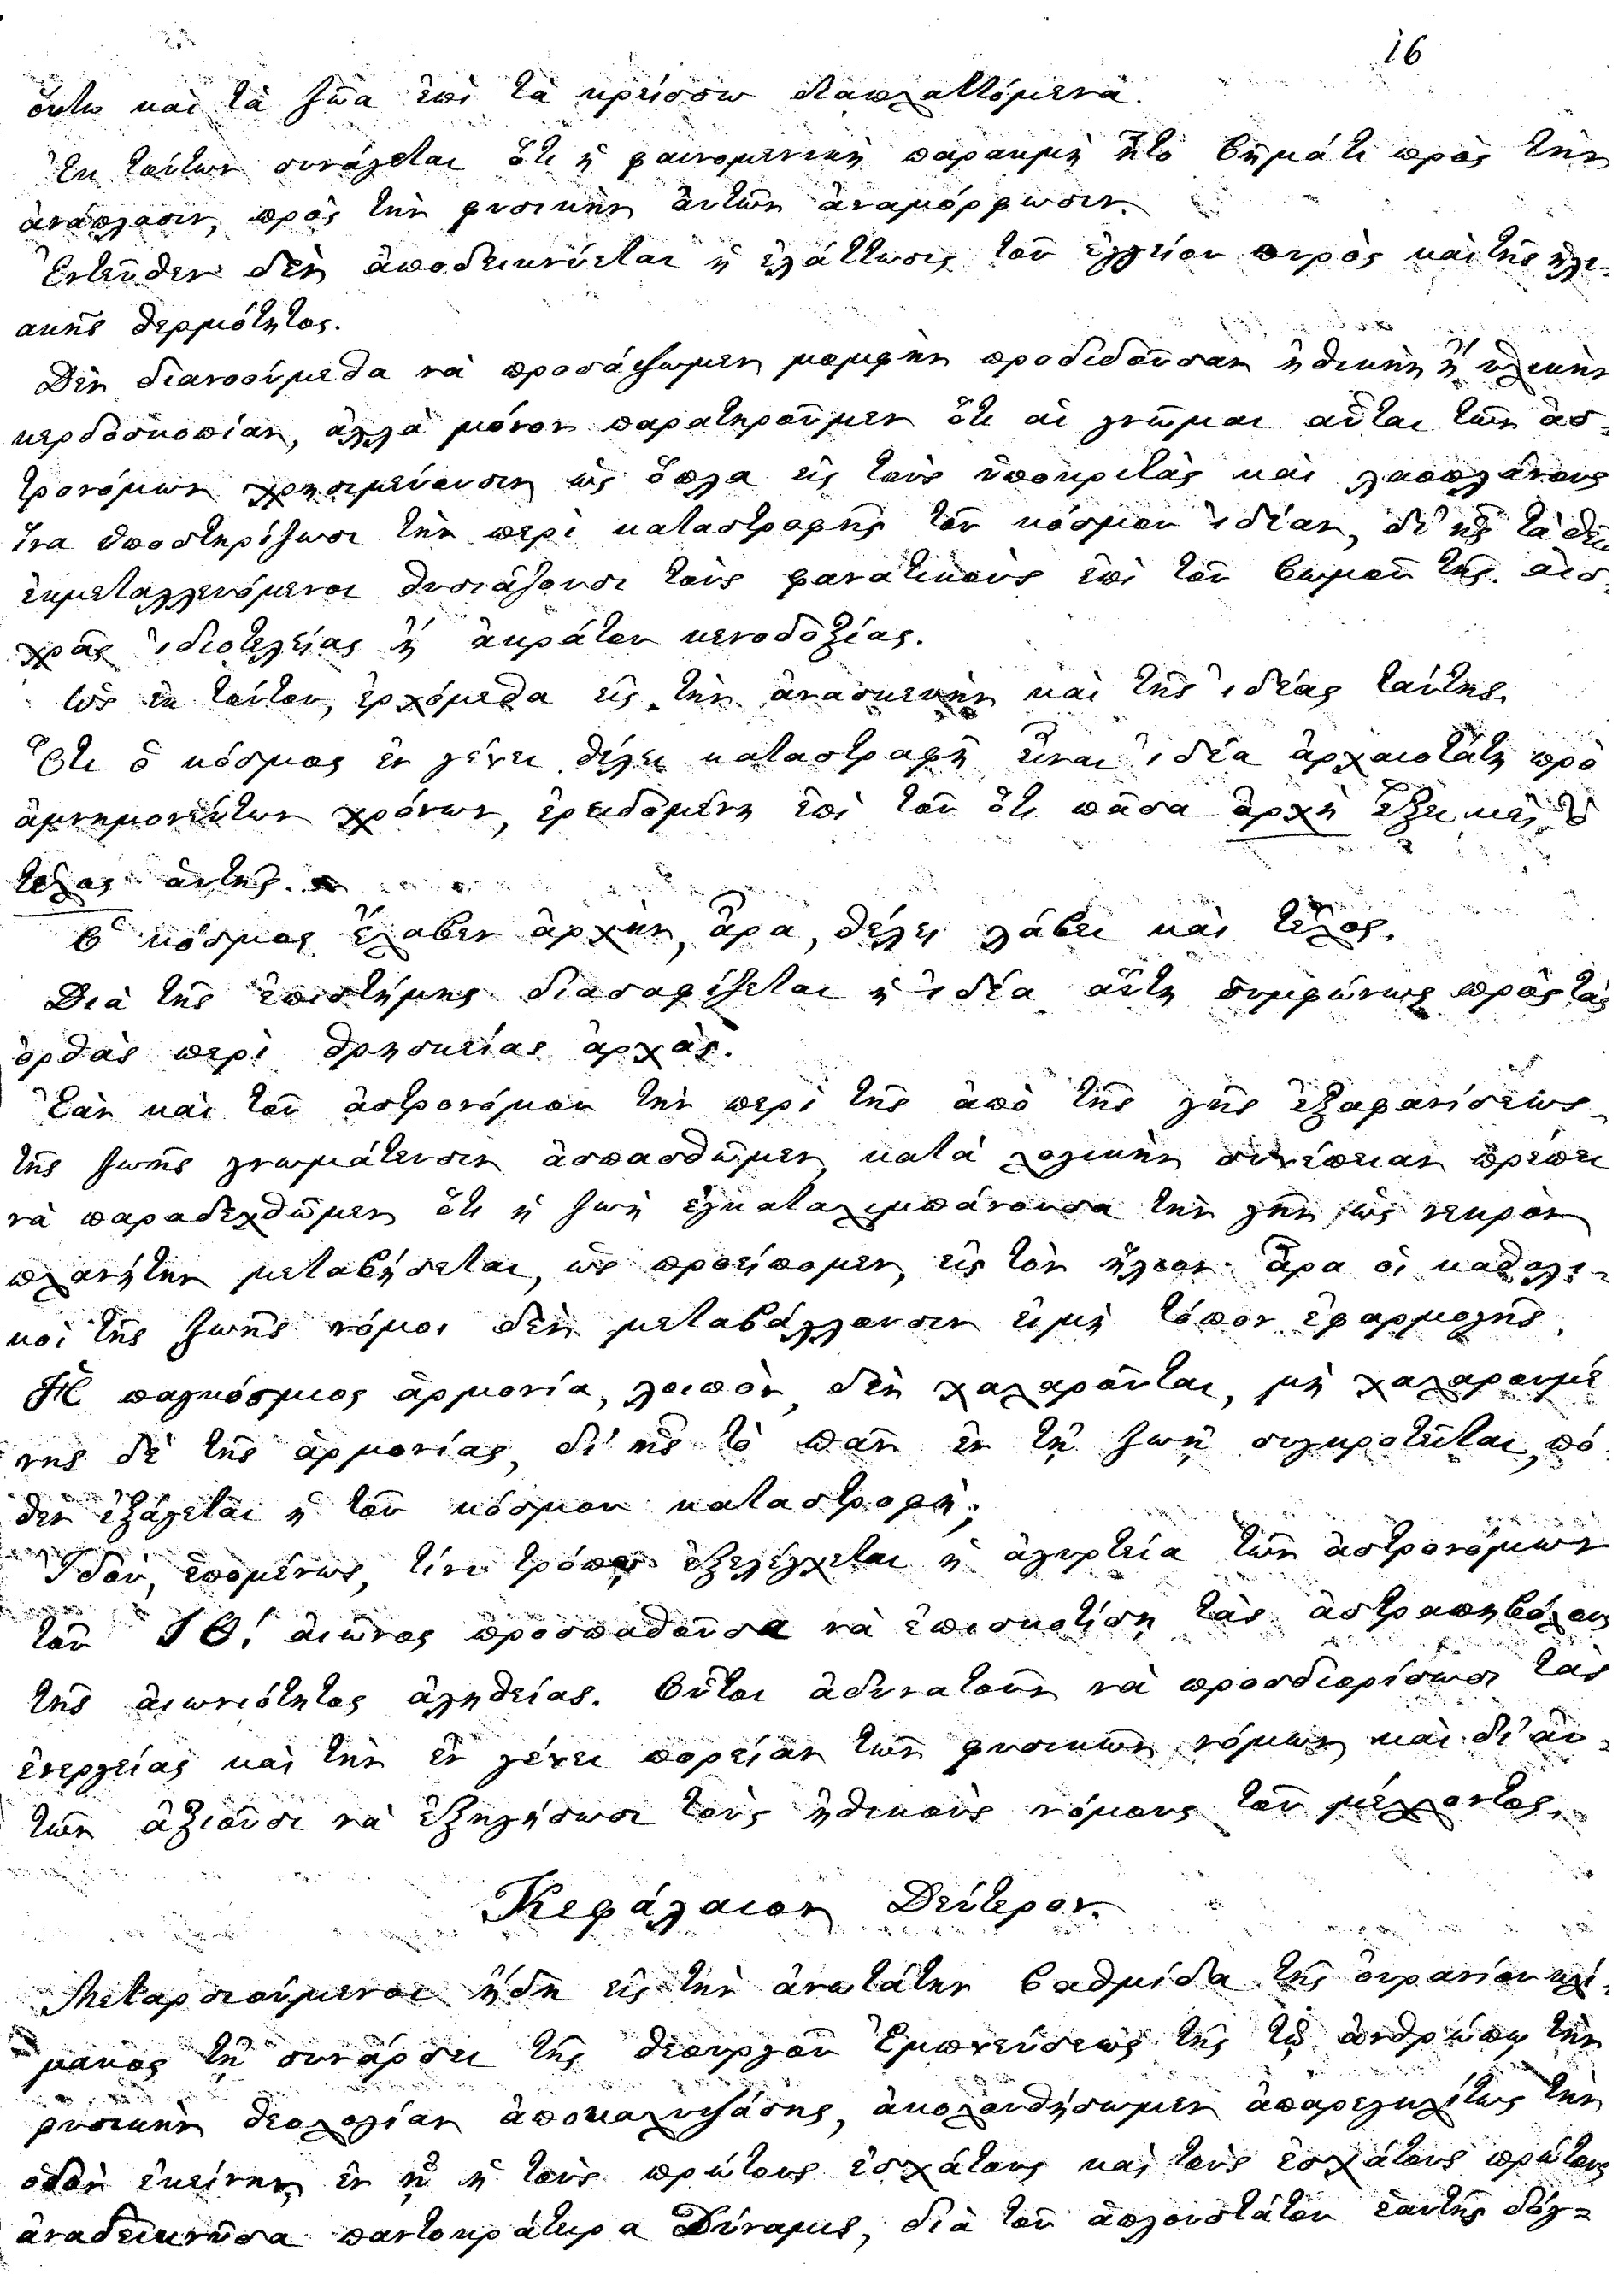 16
οὕτω καὶ τὰ ζῶα ἐπὶ τὰ κρείσσω διαπλαττόμενα.
Ἐκ τούτων συνάγεται ὅτι ἡ φαινομενικὴ παρακμὴ ἦτο βῆμά τι πρὸς τὴν
ἀνάπλασιν, πρὸς τὴν φυσικὴν αὐτῶν ἀναμόρφωσιν.
Ἐντεῦθεν δὲν ἀποδεικνύεται ἡ ἐλάττωσις τοῦ ἐγγείου πυρὸς καὶ τῆς ἡλι-
ακῆς θερμότητος.
Δὲν διανοούμεθα νὰ προσάψωμεν μομφὴν προδιδοῦσαν ἠθικὴν ἢ ὑλικὴν
κερδοσκοπίαν, ἀλλὰ μόνον παρατηροῦμεν ὅτι αἱ γνῶμαι αὗται τῶν ἀσ-
τρονόμων χρησιμεύουσιν ὡς ὅπλα εἰς τοὺς ὑποκριτὰς καὶ λαοπλάνους
ἵνα ὑποστηρίζωσι τὴν περὶ καταστροφῆς τοῦ κόσμου ἰδέαν, δι' ἧς τὰ
ἐκμεταλλευόμενοι θυσιάζουσι τοὺς φανατικοὺς ἐπὶ τοῦ βωμοῦ τῆς αἰσ-
χρᾶς ἰδιοτελείας ἢ ἀκράτου κενοδοξίας.
Ὡς ἐκ τούτου, ἐρχόμεθα εἰς τὴν ἀνασκευὴν καὶ τῆς ἰδέας ταύτης.
Ὅτι ὁ κόσμος ἐν γένει θέλει καταστραφῆ εἶναι ἰδέα ἀρχαιοτάτη πρὸ
ἀμνημονεύτων χρόνων, ἐρειδομένη ἐπὶ τοῦ ὅτι πᾶσα ἀρχὴ ἔχει καὶ τὸ
τέλος αὐτῆς.
Ὁ κόσμος ἔλαβεν ἀρχὴν, ἄρα, θέλει λάβει καὶ τέλος.
Διὰ τῆς ἐπιστήμης διασαφίζεται ἡ ἰδέα αὕτη συμφώνως πρὸς τὰς
ὀρθὰς περὶ θρησκείας ἀρχάς.
Ἐὰν καὶ τοῦ ἀστρονόμου τὴν περὶ τῆς ἀπὸ τῆς γῆς ἐξαφανίσεως
τῆς ζωῆς γνωμάτευσιν ἀσπασθῶμεν κατὰ λογικὴν συνέπειαν πρέπει
νὰ παραδεχθῶμεν ὅτι ἡ ζωὴ ἐγκαταλιμπάνουσα τὴν γῆν ὡς νεκρὸν
πλανήτην μεταβήσεται, ὡς προείπομεν, εἰς τὸν ἥλιον· ἄρα οἱ καθολι-
κοὶ τῆς ζωῆς νόμοι δὲν μεταβάλλουσιν εἰμὴ τόπον ἐφαρμογῆς.
Ἡ παγκόσμιος ἁρμονία, λοιπὸν, δὲν χαλαροῦται, μὴ χαλαρουμέ
νης δὲ τῆς ἁρμονίας, δι' ἧς τὸ πᾶν ἐν τῇ ζωῇ συγκροτεῖται, πό-
θεν ἐξάγεται ἡ τοῦ κόσμου καταστροφή;
Ἰδοὺ, ἑπομένως, τίνι τρόπῳ ἐξελέγχεται ἡ ἀγυρτεία τῶν ἀστρονόμων
τοῦ ΙΘ'. αἰῶνος προσπαθοῦσα νὰ ἐπισκοτίσῃ τὰς ἀστραπηβόλους
τῆς αἰωνιότητος ἀληθείας. Οὗτοι ἀδυνατοῦν νὰ προσδιορίσωσι τὰς
ἐνεργείας καὶ τὴν ἐν γένει πορείαν τῶν φυσικῶν νόμων καὶ δι' αὐ-
τῶν ἀξιοῦσι νὰ ἐξηγήσωσι τοὺς ἠθικοὺς νόμους τοῦ μέλλοντος.
Κεφάλαιον Δεύτερον.
Μεταρσιούμενοι ἤδη εἰς τὴν ἀνωτάτην βαθμίδα τῆς οὐρανίου κλί-
μακος τῇ συνάρσει τῆς θεουργοῦ Ἐμπνεύσεως τῆς τῷ ἀνθρώπῳ τὴν
φυσικὴν θεολογίαν ἀποκαλυψάσης, ἀκολουθήσωμεν ἀπαρεγκλίτως τὴν
ὁδὸν ἐκείνην ἐν ᾗ ἡ τοὺς πρώτους ἐσχάτους καὶ τοὺς ἐσχάτους πρώτους
ἀναδεικνῦσα παντοκράτειρα Δύναμις, διὰ τοῦ ἁπλουστάτου ἑαυτῆς δόγ-